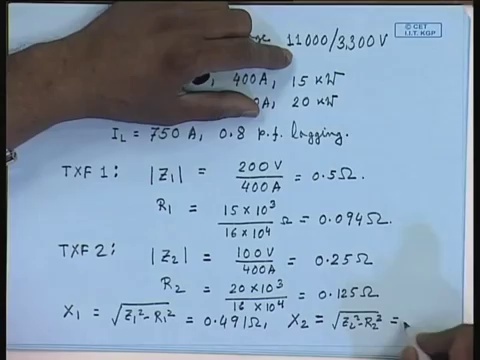 © CET
I.I.T. KGP
11000/3,300 V
400A, 15 KW
0A, 20 KW
I_L = 750 A, 0.8 p.f lagging.
TXF 1: |Z₁| = 200 V / 400A = 0.5Ω.
R₁ = 15 × 10³ / 16 × 10⁴ Ω = 0.094Ω.
TXF 2: |Z₂| = 100V / 400A = 0.25Ω
R₂ = 20 × 10³ / 16 × 10⁴ = 0.125Ω
X₁ = √Z₁² - R₁² = 0.491Ω, X₂ = √Z₂² - R₂² =